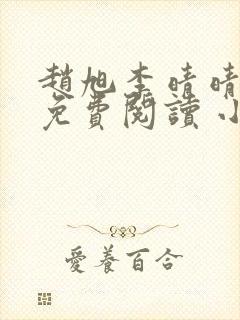 趙旭李晴晴
免費閱讀小
愛養百合